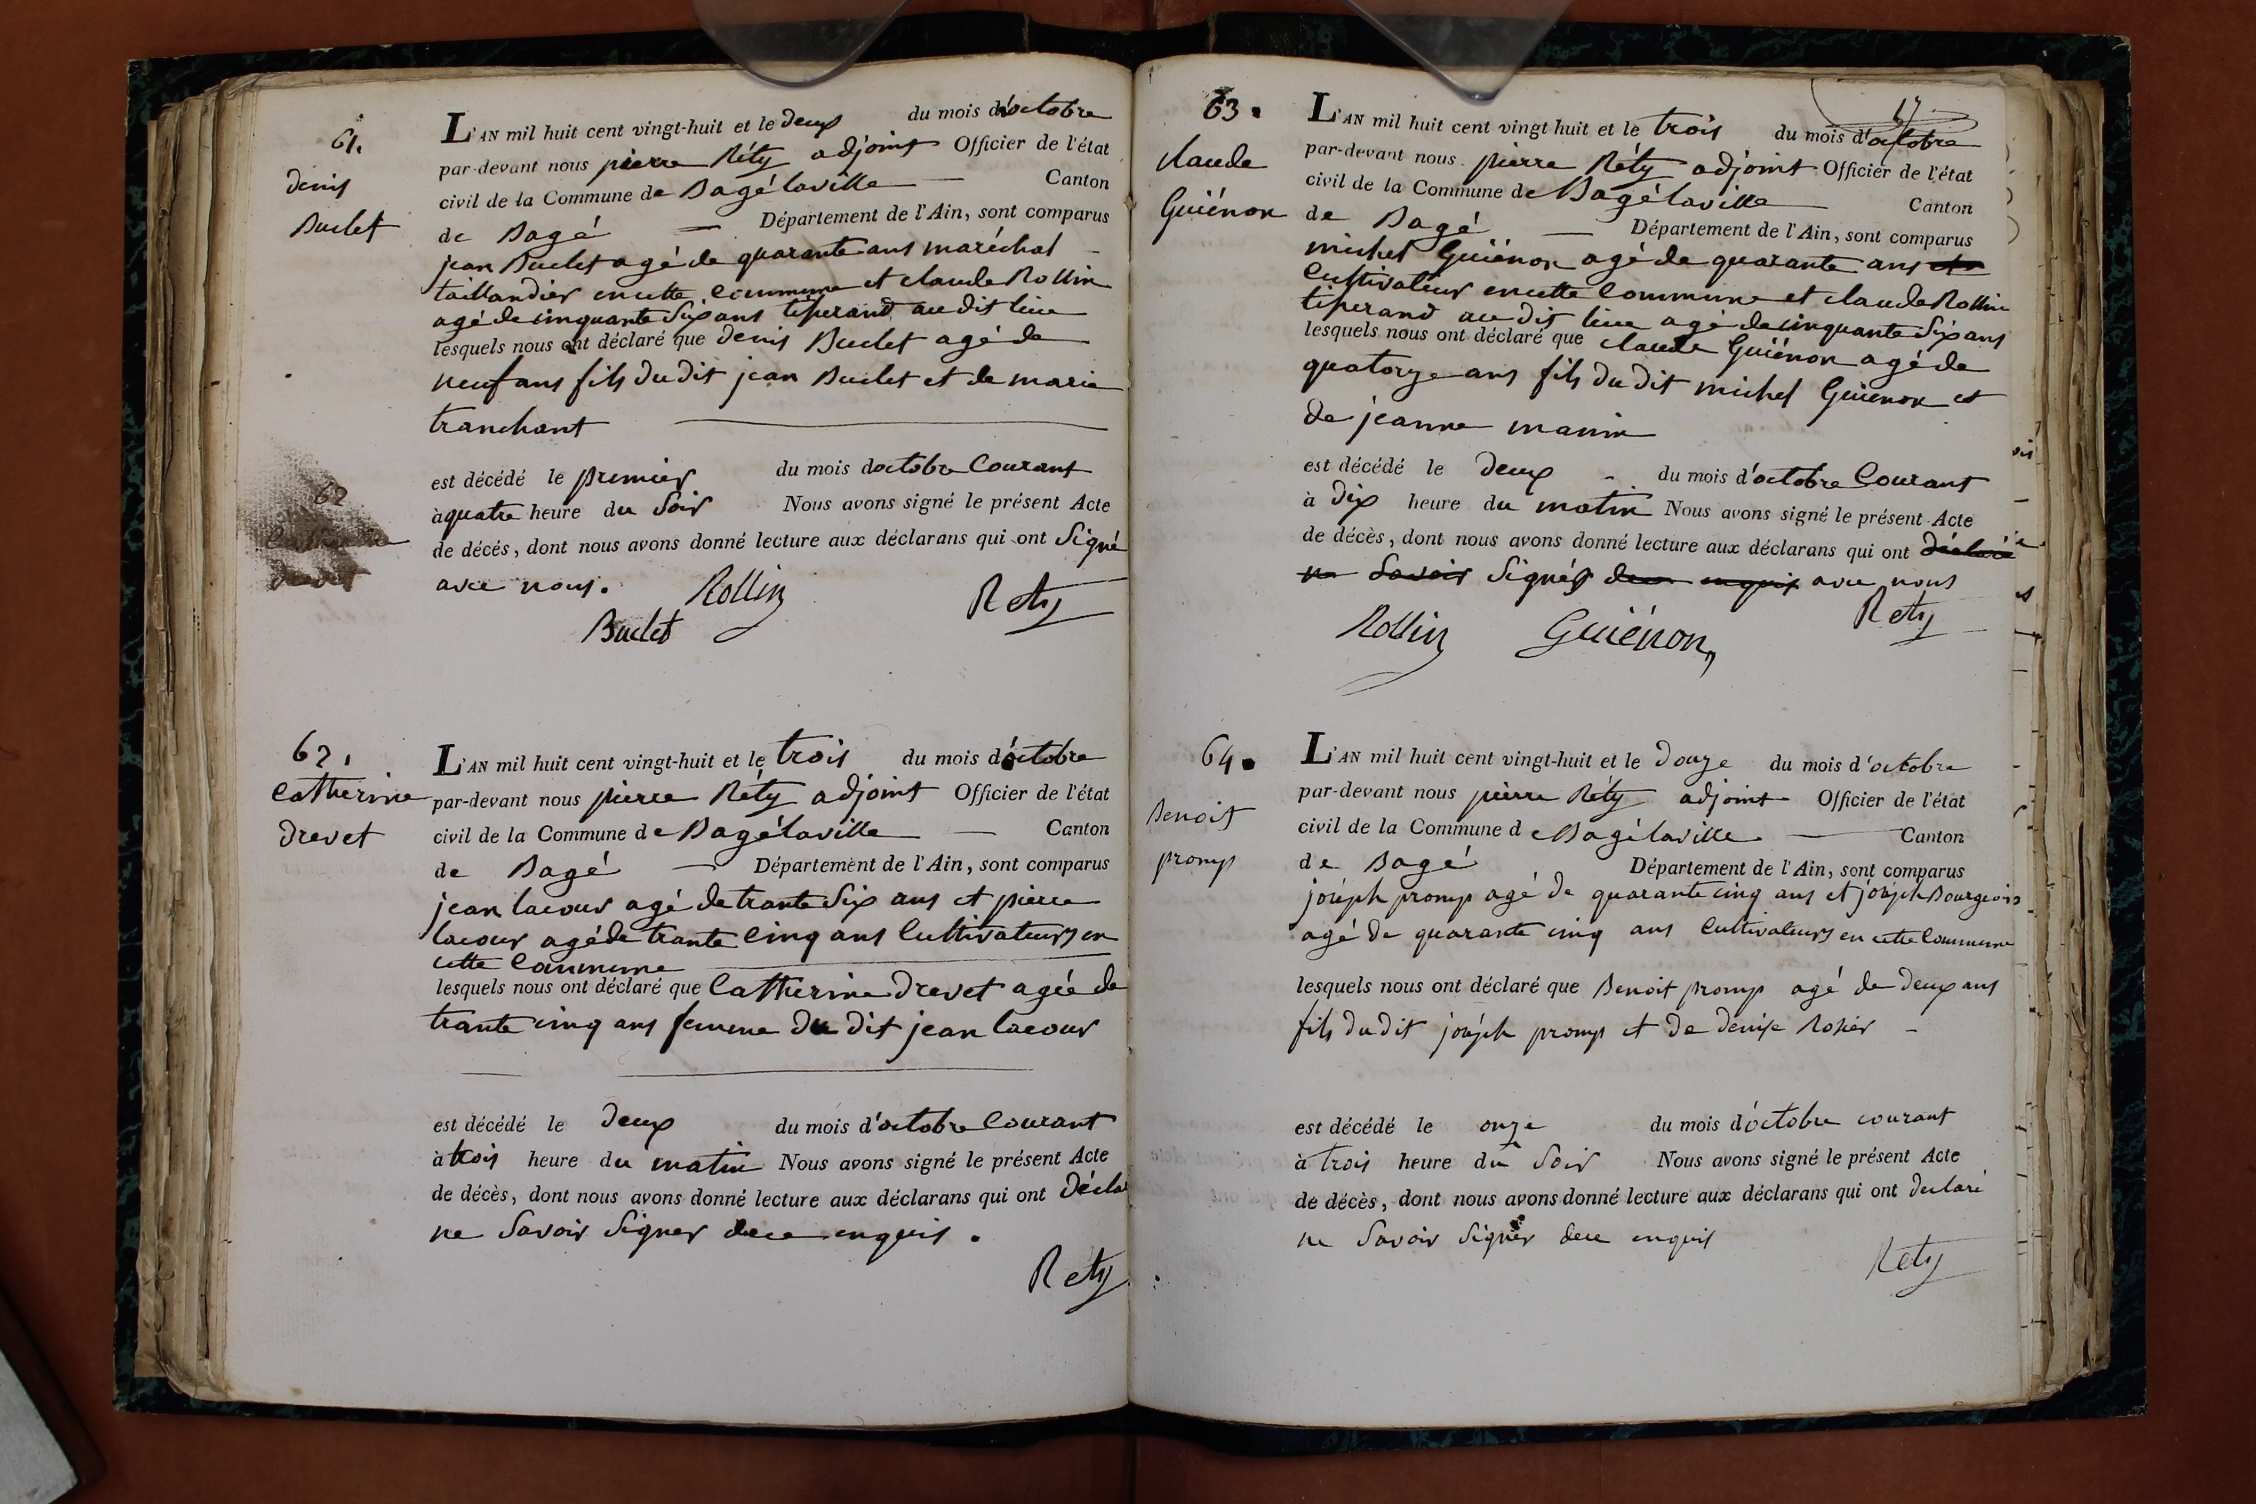 61.
denis
Buclet
L'AN mil huit cent vingt-huit et le deux du mois d'octobre
par-devant nous pierre Réty adjoint Officier de l'état
civil de la Commune de Bagélaville — Canton
de Bagé — Département de l'Ain, sont comparus
jean Buclet agé de quarante ans maréchal
taillandier en cette commune et claude Rollin
agé de cinquante six ans tiserand au dit lieu
lesquels nous ont déclaré que denis Buclet agé de
neuf ans fils du dit jean Buclet et de marie
tranchant
est décédé le premier du mois doctobre Courant
à quatre heure du Soir Nous avons signé le présent Acte
de décés, dont nous avons donné lecture aux déclarans qui ont Signé
avec nous.
Rollin
Rety
Buclet
62
Catherine
drevet
62.
Catherine
drevet
L'AN mil huit cent vingt-huit et le trois du mois d'octobre
par-devant nous pierre Réty adjoint Officier de l'état
civil de la Commune de Bagélaville — Canton
de Bagé — Département de l'Ain, sont comparus
jean lacour agé de trante Six ans et pierre
lacour agé de trante Cinq ans Cultivateurs en
cette Commune
lesquels nous ont déclaré que Catherine drevet agée de
trante cinq ans femme du dit jean lacour
est décédé le deux du mois d'octobre Courant
à trois heure du matin Nous avons signé le présent Acte
de décès, dont nous avons donné lecture aux déclarans qui ont Décla
ne Savoir Signer dece enquis.
Rety
17
63.
claude
Guiénon
L'AN mil huit cent vingt huit et le trois du mois d'octobre
par-devant nous pierre Réty adjoint Officier de l'état
civil de la Commune de Bagélaville — Canton
de Bagé — Département de l'Ain, sont comparus
michel Guiénon agé de quarante ans
Cultivateur en cette Commune et claude Rollin
tiserand au dit lieu agé de cinquante Six ans
lesquels nous ont déclaré que claude Guiénon agé de
quatorze ans fils du dit michel Guienon et
de jeanne manin
est décédé le deux du mois d'octobre Courant
à dix heure du matin Nous avons signé le présent Acte
de décès, dont nous avons donné lecture aux déclarans qui ont déclaré
ne Savoir Signés dece enquis avec nous
Rety
Rollin Guiénon
64.
Benoit
promp
L'AN mil huit cent vingt-huit et le douze du mois d'octobre
par-devant nous pierre Réty adjoint Officier de l'état
civil de la Commune de Bagélaville — Canton
de Bagé Département de l'Ain, sont comparus
joséph promp agé de quarante cinq ans et joséph Bourgeois
agé de quarante cinq ans Cultivateurs en cette Commune
lesquels nous ont déclaré que Benoit promp agé de deux ans
fils du dit joséph promp et de denise Rosier —
est décédé le onze du mois d'octobre courant
à trois heure du Soir Nous avons signé le présent Acte
de décès, dont nous avons donné lecture aux déclarans qui ont declaré
ne Savoir Signer dece enquis
Rety